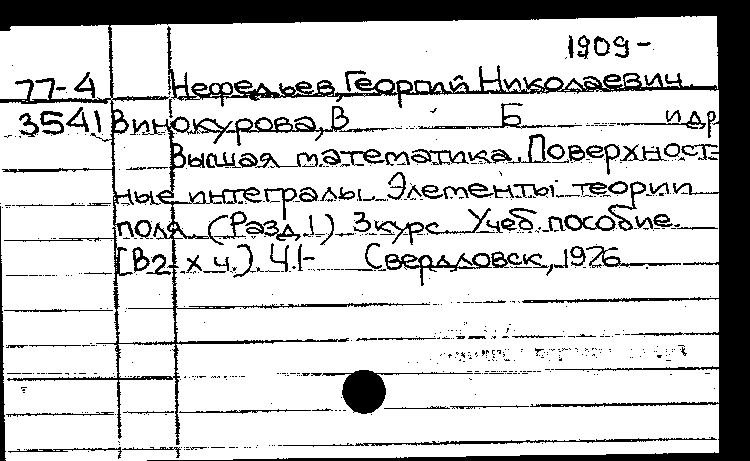 1909-
77-4 Нефедьев, Георгий Николаевич.
3541 Винокурова, В Б и др
Высшая математика. Поверхност=
ные интегралы. Элементы теории
поля. (Разд. 1) 3 курс. Учеб. пособие.
[В 2-х ч.). Ч.1- Свердловск, 1976